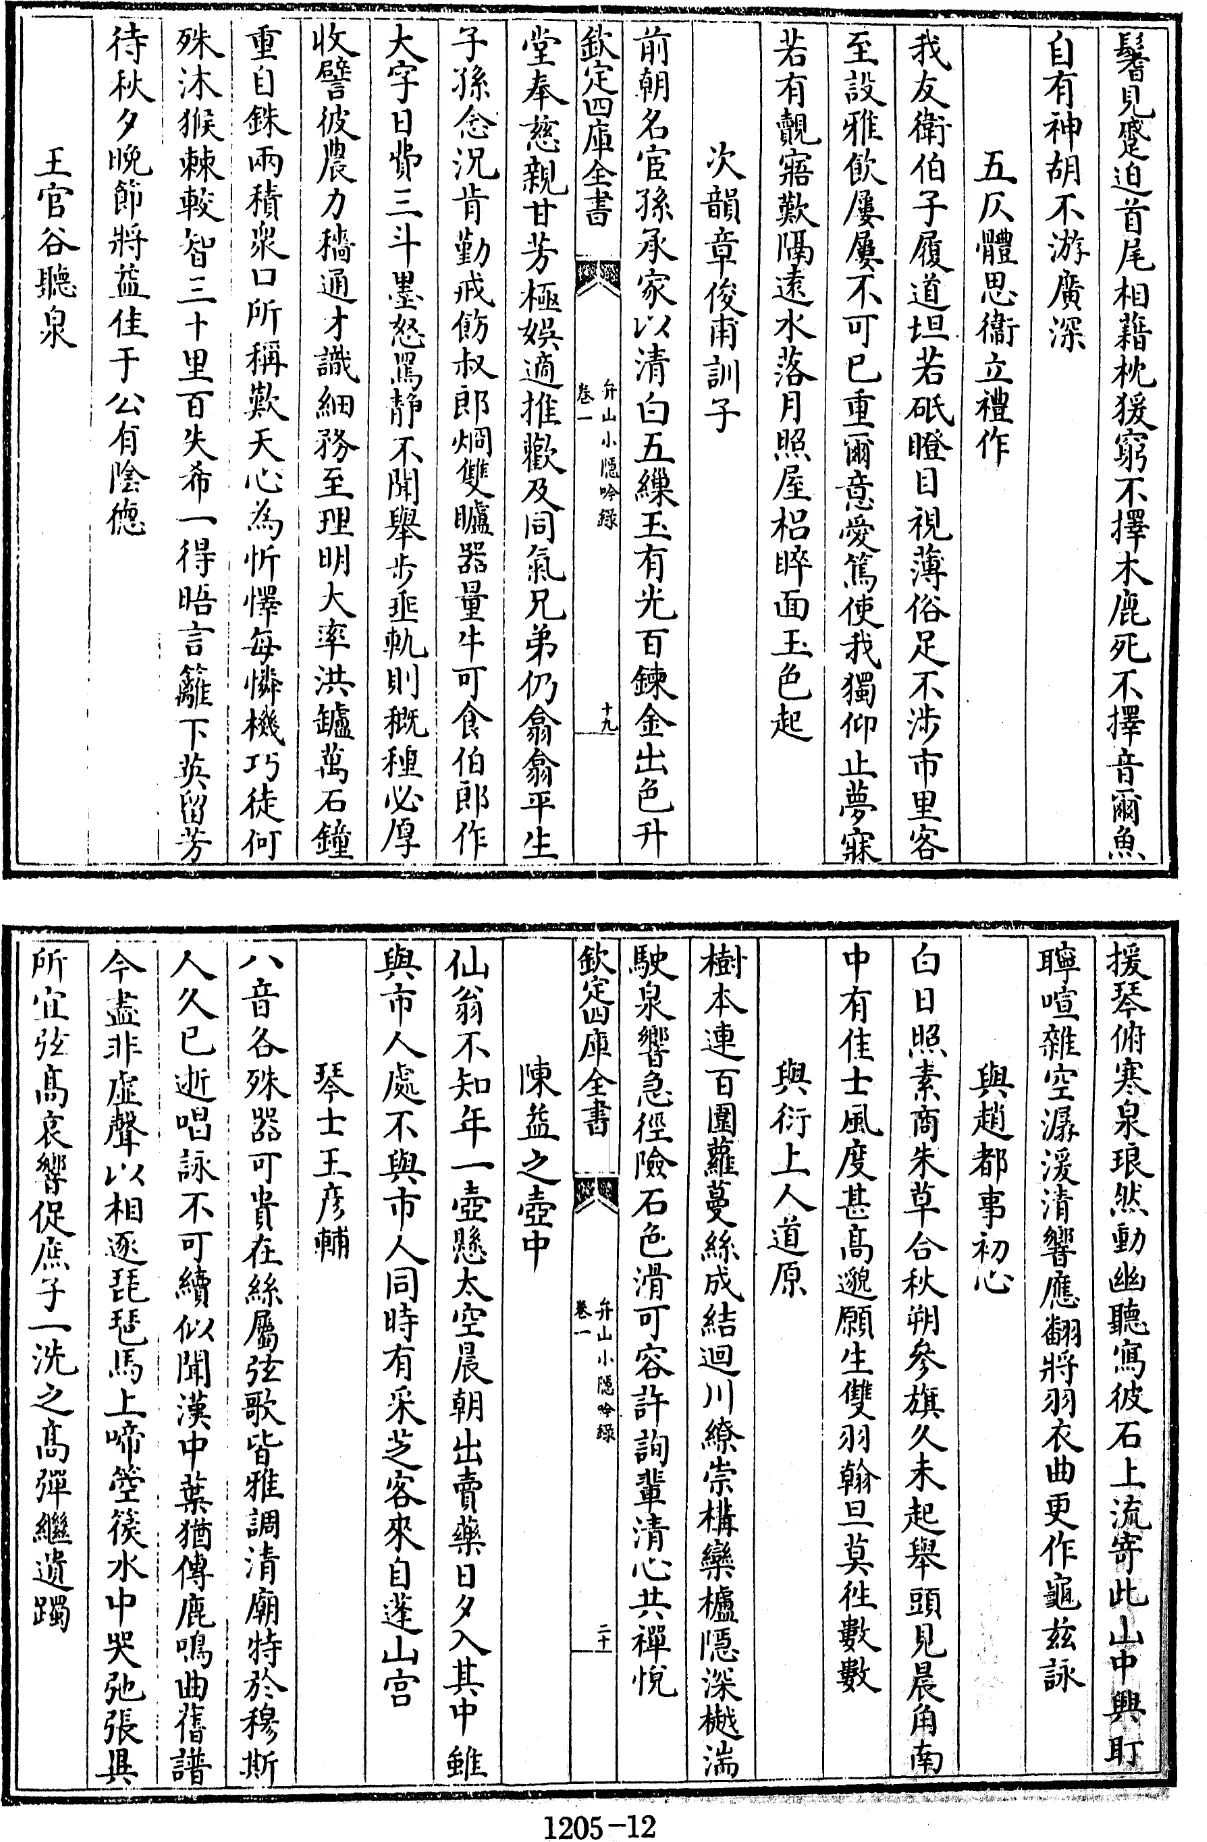 鬐見蹙迫首尾相藉枕猨窮不擇木鹿死不擇音爾魚
自有神胡不游廣深
五仄體思衞立禮作
我友衛伯子履道坦若砥瞪目視薄俗足不涉市里客
至設雅飲屢屢不可已重爾意愛篤使我獨仰止夢寐
若有覿寤歎隔遠水落月照屋梠睟面玉色起
次韻章俊甫訓子
前朝名宦孫承家以清白五繅玉有光百鍊金出色升
欽定四庫全書
弁山小隱吟錄
卷一
十九
堂奉慈親甘芳極娛適推歡及同氣兄弟仍翕翕平生
子孫念況肯勤戒飭叔郎炯雙矑器量牛可食伯郎作
大字日費三斗墨怒罵靜不聞舉步歪軌則穊種必厚
收譬彼農力穡通才識細務至理明大率洪鑪萬石鐘
重自銖兩積衆口所稱歎天心為忻懌每憐機巧徒何
殊沐猴棘較智三十里百失希一得晤言籬下英留芳
待秋夕晩節將益佳于公有陰德
王官谷聽泉
援琴俯寒泉琅然動幽聽寫彼石上流寄此山中興耵
聹喧雜空潺湲清響應翻將羽衣曲更作龜玆詠
與趙都事初心
白日照素商朱草合秋朔參旗久未起舉頭見晨角南
中有佳士風度甚高邈願生雙羽翰旦莫徃數數
與衍上人道原
樹本連百圍蘿蔓絲成結迴川繚崇構欒櫨隱深樾湍
駛泉響急徑險石色滑可容許詢輩清心共禪悅
欽定四庫全書
弁山小隱吟錄
卷一
二十
陳益之壺中
仙翁不知年一壺懸太空晨朝出賣藥日夕入其中雖
與市人處不與市人同時有采芝客來自蓬山宮
琴士王彦輔
八音各殊器可貴在絲屬弦歌皆雅調清廟特於穆斯
人久已逝唱詠不可續似聞漢中葉猶傳鹿鳴曲舊譜
今盡非虛聲以相逐琵琶馬上啼箜篌水中哭弛張具
所宜弦高哀響促庶子一洗之高彈繼遺躅
1205-12